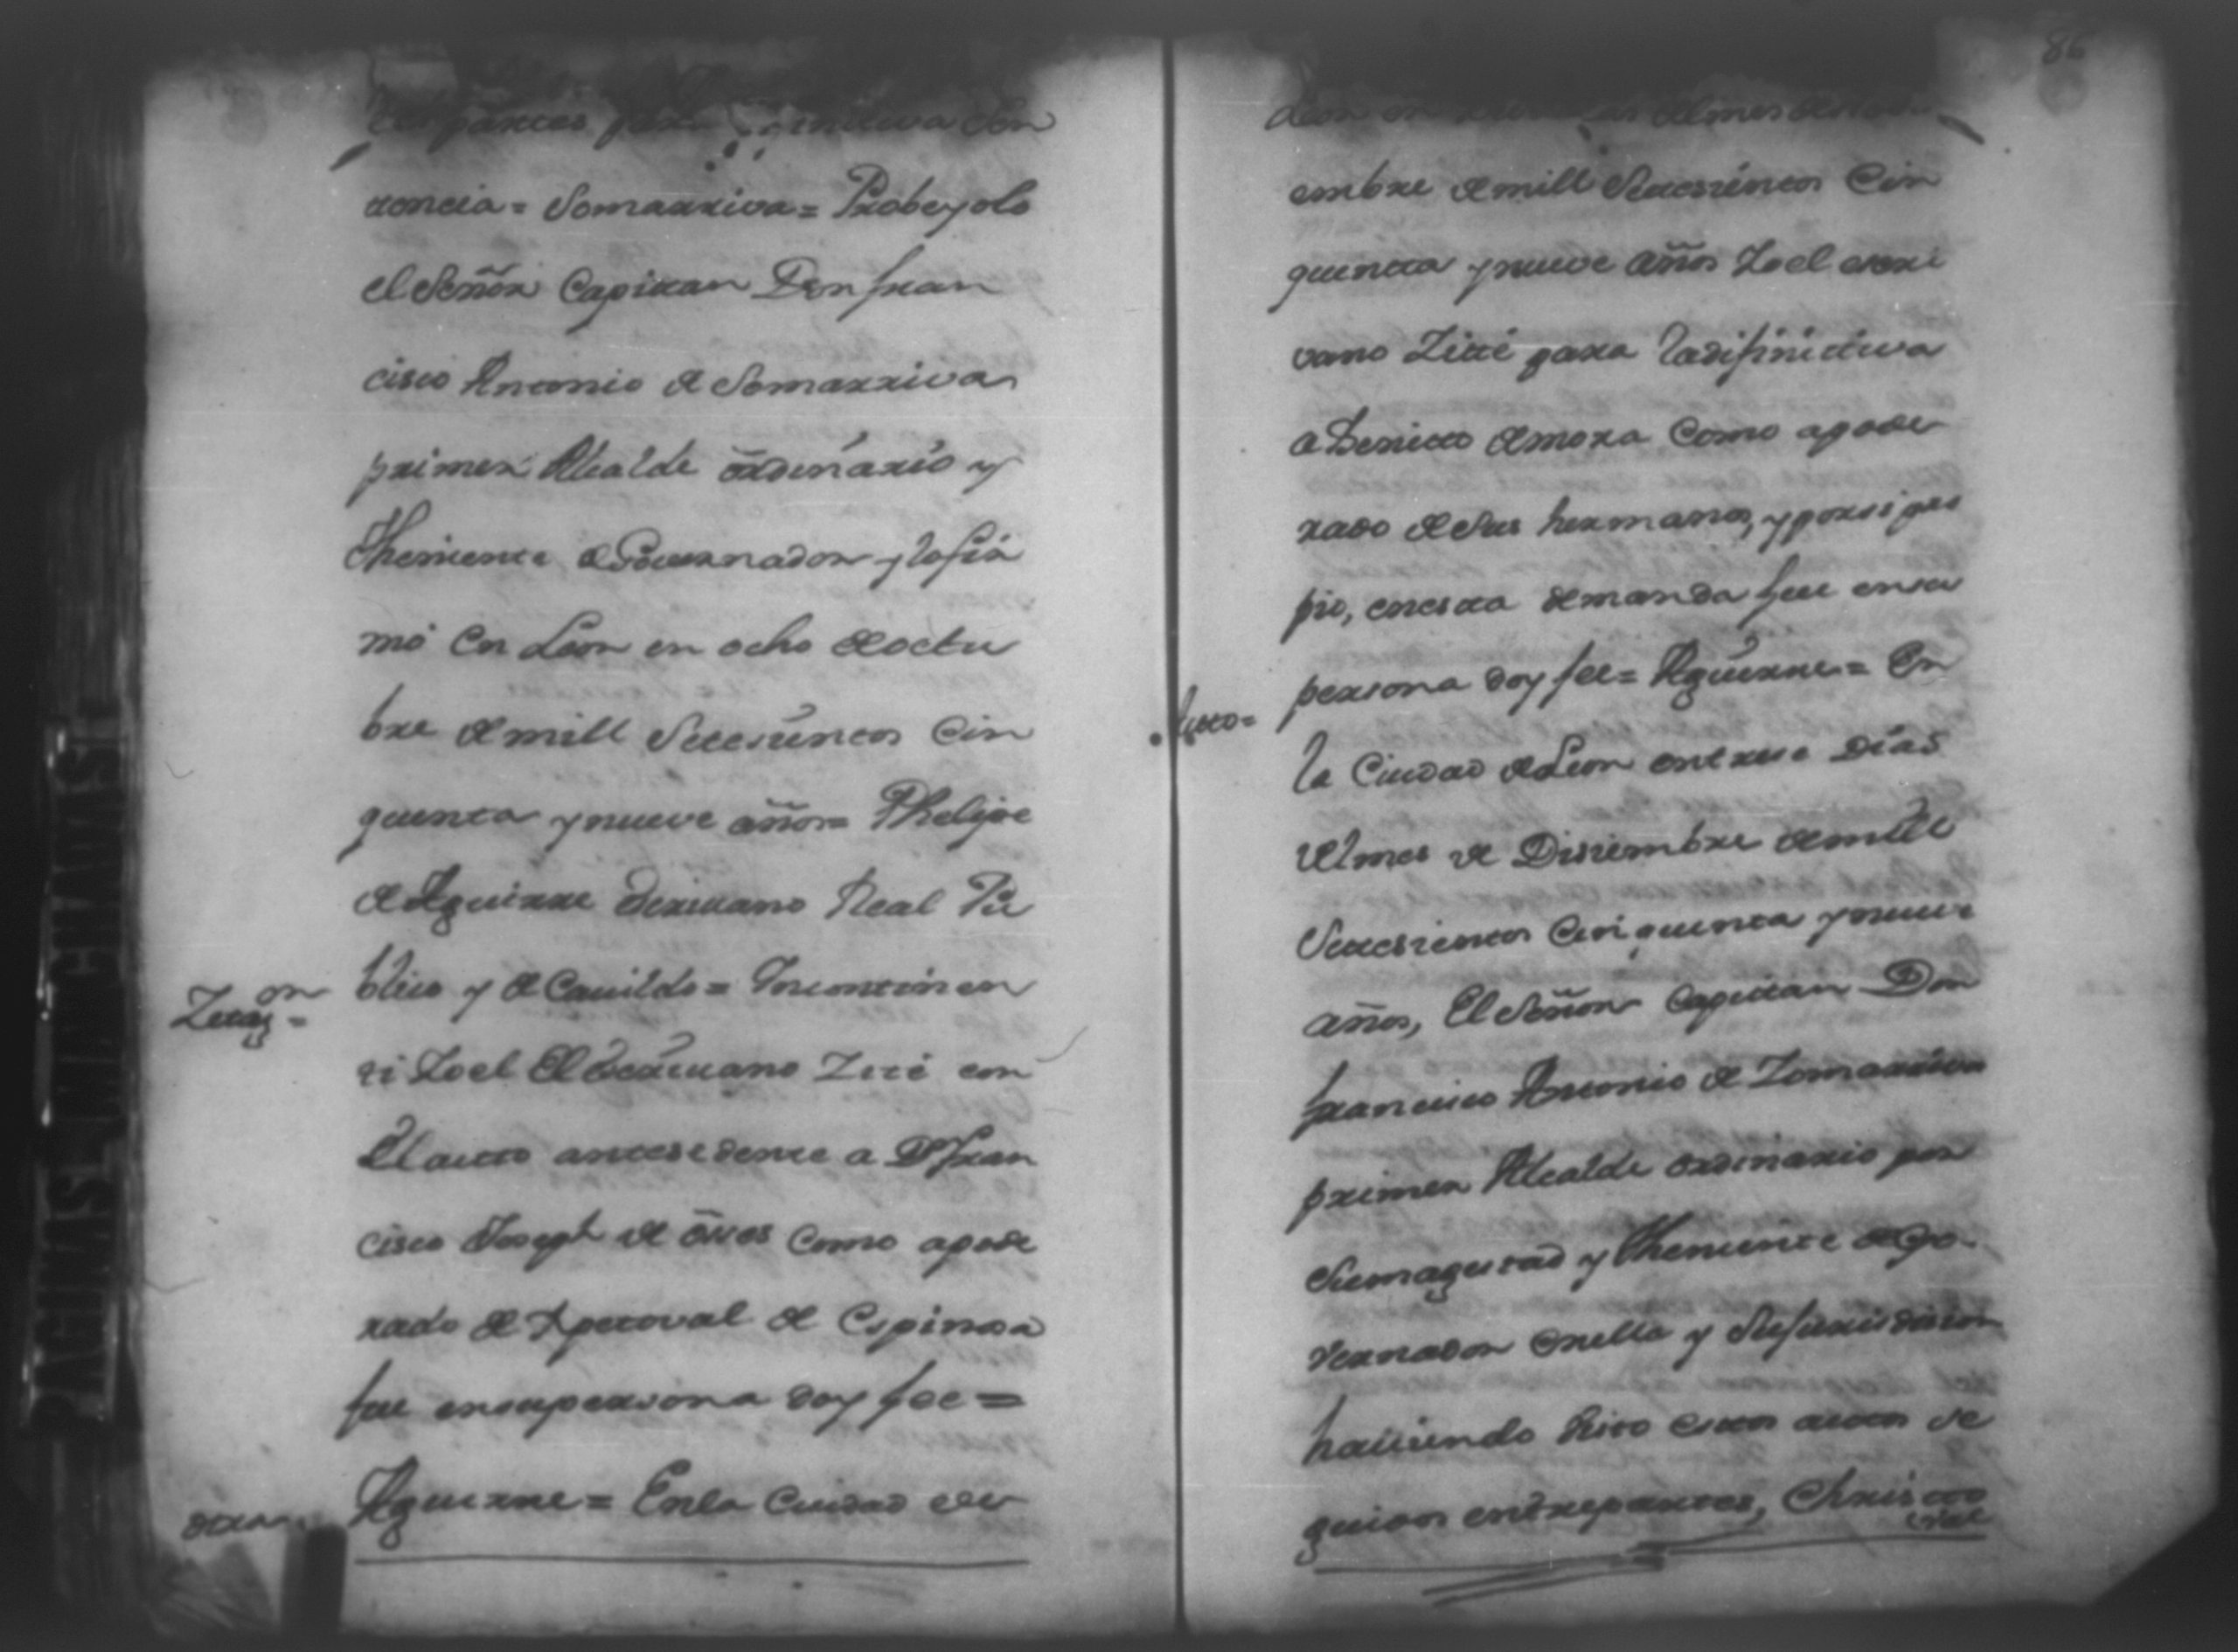 las partes para difinitiva Sen
tencia = Somarriva = Probeyolo
el Señor Capitan Don fran
cisco Antonio de Somarriva
primer Alcalde ordinario y
Theniente de Governador y lo fir
mó en Leon en ocho de octu
bre de mill Setesientos Cin
quenta y nueve años = Phelipe
de Aguirre Escrivano Real Pu
Zitaz.on =
blico y de Cavildo = Incontinen
ti Yo el Escrivano Zité con
El autto antesedente a Dn Fran
cisco Joseph de ... Como apode
rado de Xptoval de Espinosa
fue en su persona doy fee =
otra
Aguirre = En la Ciudad de
86
Leon en ... del mes de Nobi
embre de mill Setesientos Cin
quenta y nueve años Yo el escri
vano Zitté para la difinittiva
a Benitto de mora Como apode
rado de Sus hermanos, y por si pro
pio, en esta demanda fue en su
persona doy fee = Aguirre = En
Autto =
la Ciudad de Leon en trese Dias
del mes de Disiembre de mill
Settesientos Cinquenta y nueve
años, El Señor Capittan Don
francisco Antonio de Zomarriva
primer Alcalde ordinario por
Su magestad y Theniente de Go
vernador en ella y Su jurisdision
haviendo visto estos autos se
guidos entre partes, Christto
val